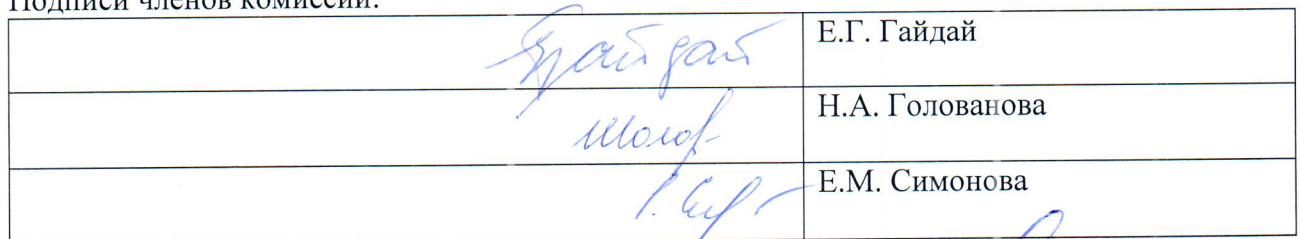 Подписи членов комиссии:
Е.Г. Гайдай
Н.А. Голованова
Е.М. Симонова